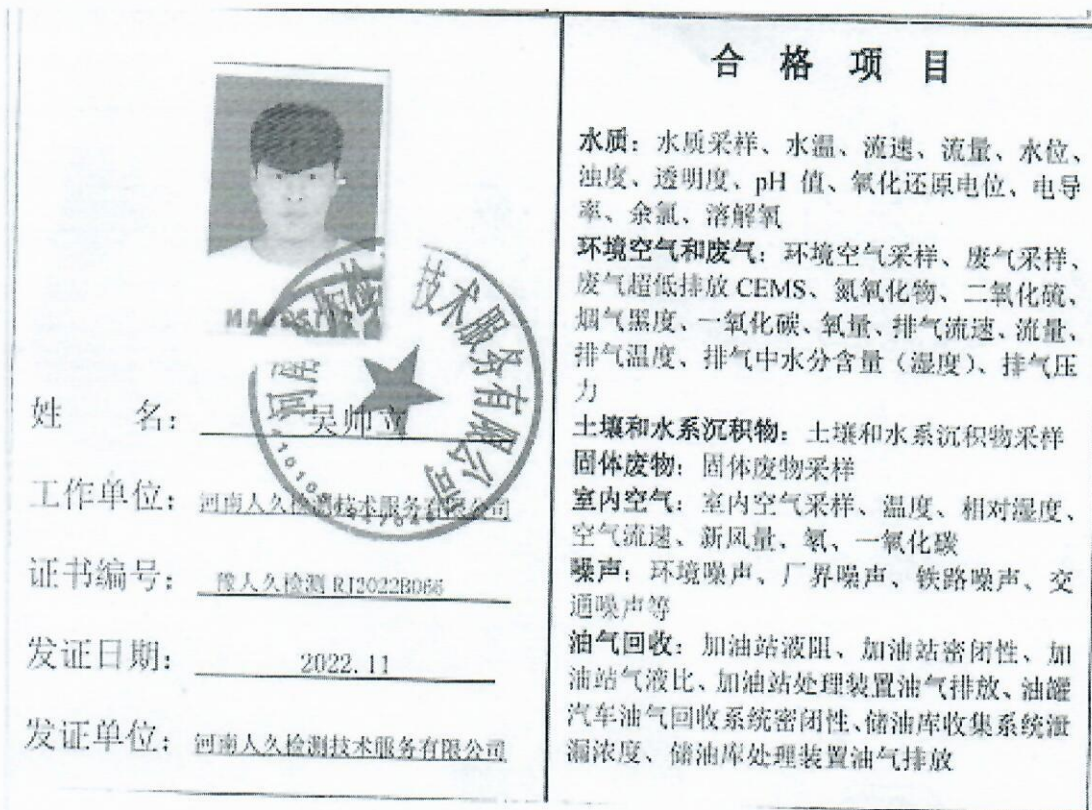 姓 名：吴帅立
工作单位：河南人久检测技术服务有限公司
证书编号：豫人久检测 RJ2022B066
发证日期：2022.11
发证单位：河南人久检测技术服务有限公司
技术服务有限公司
河南
合格项目
水质：水质采样、水温、流速、流量、水位、
浊度、透明度、pH 值、氧化还原电位、电导
率、余氯、溶解氧
环境空气和废气：环境空气采样、废气采样、
废气超低排放 CEMS、氮氧化物、二氧化硫、
烟气黑度、一氧化碳、氧量、排气流速、流量、
排气温度、排气中水分含量（湿度）、排气压
力
土壤和水系沉积物：土壤和水系沉积物采样
固体废物：固体废物采样
室内空气：室内空气采样、温度、相对湿度、
空气流速、新风量、氡、一氧化碳
噪声：环境噪声、厂界噪声、铁路噪声、交
通噪声等
油气回收：加油站液阻、加油站密闭性、加
油站气液比、加油站处理装置油气排放、油罐
汽车油气回收系统密闭性、储油库收集系统泄
漏浓度、储油库处理装置油气排放